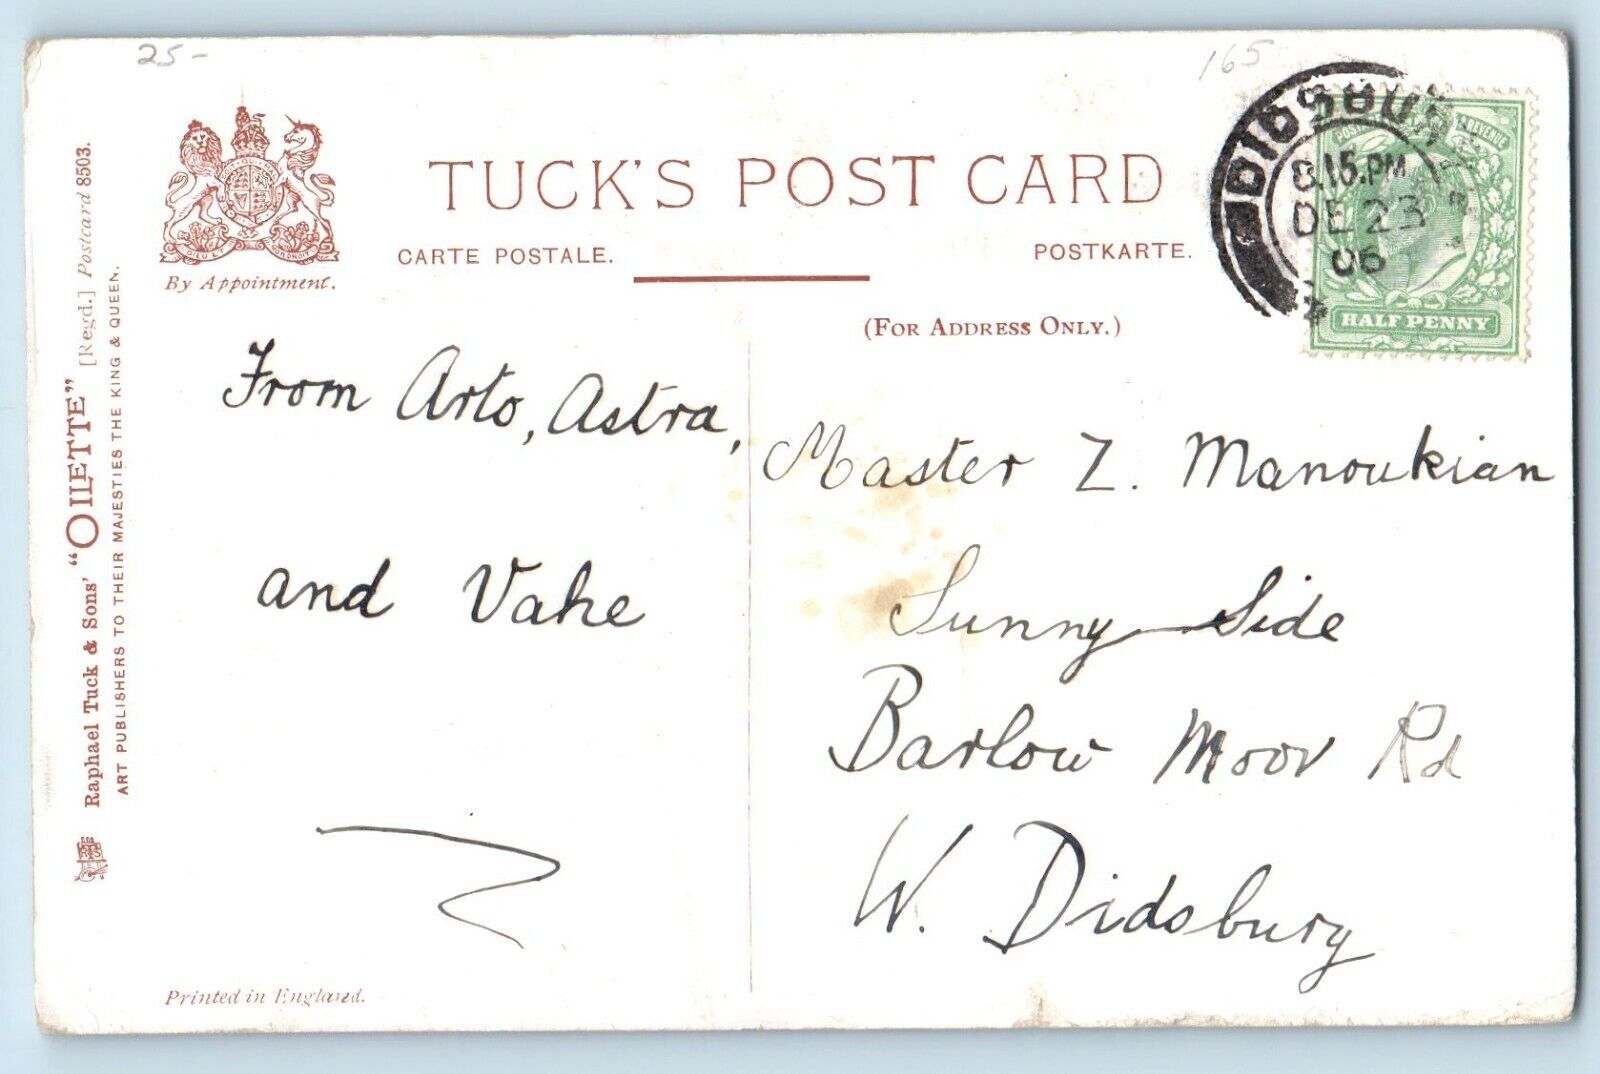 25-
165
TUCK'S POST CARD
CARTE POSTALE.
POSTKARTE.
By Appointment.
(FOR ADDRESS ONLY.)
DIDSBURY
8.15.PM
DE 23
06
HALF PENNY
Raphael Tuck & Sons' "OILETTE" [Regd.] Postcard 8503.
ART PUBLISHERS TO THEIR MAJESTIES THE KING & QUEEN.
From Arto, Astra,
and Vahe
Master Z. Manoukian
Sunny Side
Barlow Moor Rd
W. Didsbury
Printed in England.